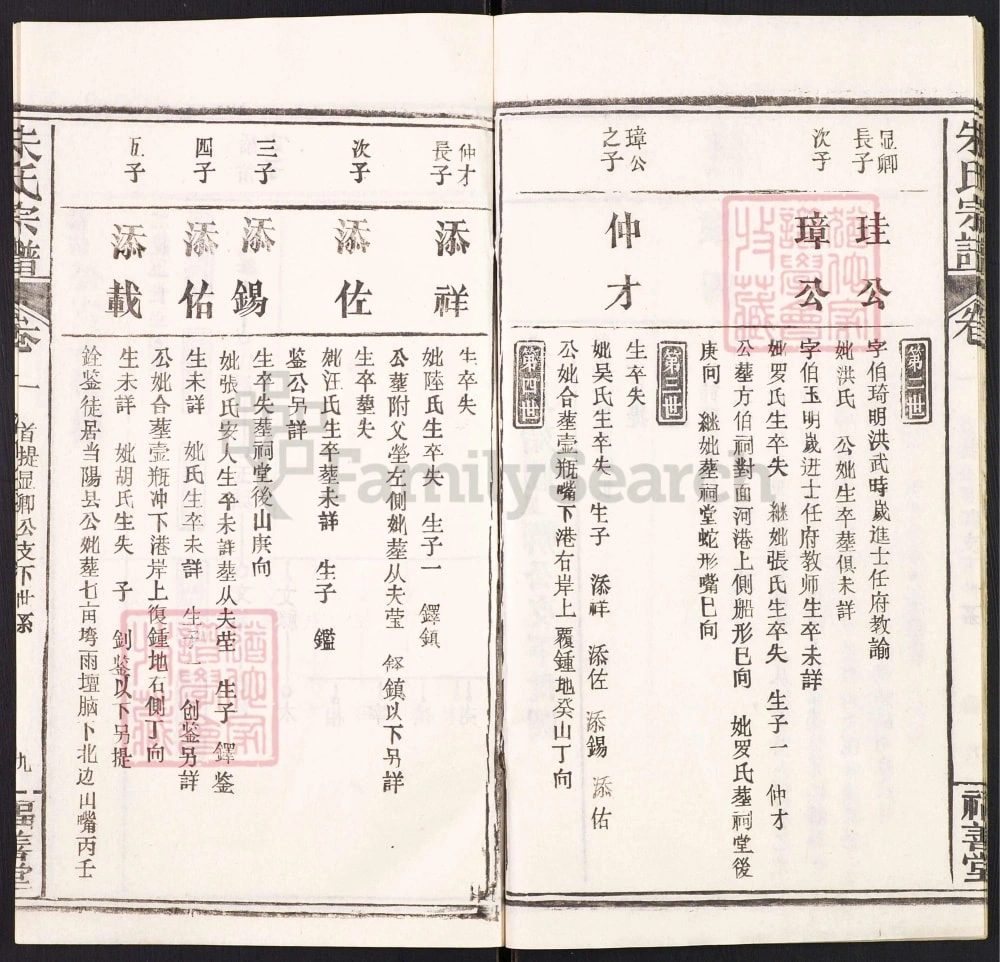 朱氏宗譜
卷
福善堂
第二世
显卿長子
珪公
字伯琦明洪武時歲進士任府教諭
妣洪氏 公妣生卒葬俱未詳
次子
璋公
字伯玉明歲进士任府教师生卒未詳
妣罗氏生卒失 継妣張氏生卒失 生子一 仲才
公墓方伯祠對面河港上側船形巳向 妣罗氏墓祠堂後
庚向 継妣葬祠堂蛇形嘴巳向
第三世
璋公之子
仲才
生卒失
妣吴氏生卒失 生子 添祥 添佐 添錫 添佑
公妣合葬壹瓶嘴下港右岸上 覆鍾地癸山丁向
第四世
仲才長子
添祥
生卒失
妣陸氏生卒失 生子一 鐸鎮
公葬附父塋左側妣葬从夫莹 鐸鎮以下另詳
次子
添佐
生卒墓失
妣汪氏生卒葬未詳 生子 鑑
鉴公另詳
三子
添錫
生卒失葬祠堂後山庚向
妣張氏安人生卒未詳葬从夫茔 生子 鐸鉴
四子
添佑
生未詳 妣氏生卒未詳 生子一 创鉴另詳
公妣合葬壹瓶冲下港岸上復鍾地右側丁向
五子
添載
生未詳 妣胡氏生失 子 釗鉴以下另提
銓鉴徒居当陽县公妣葬七亩塆雨壇脑下北边山嘴丙壬
朱氏宗譜
卷十一
首提显卿公支下世系
九
福善堂
FamilySearch